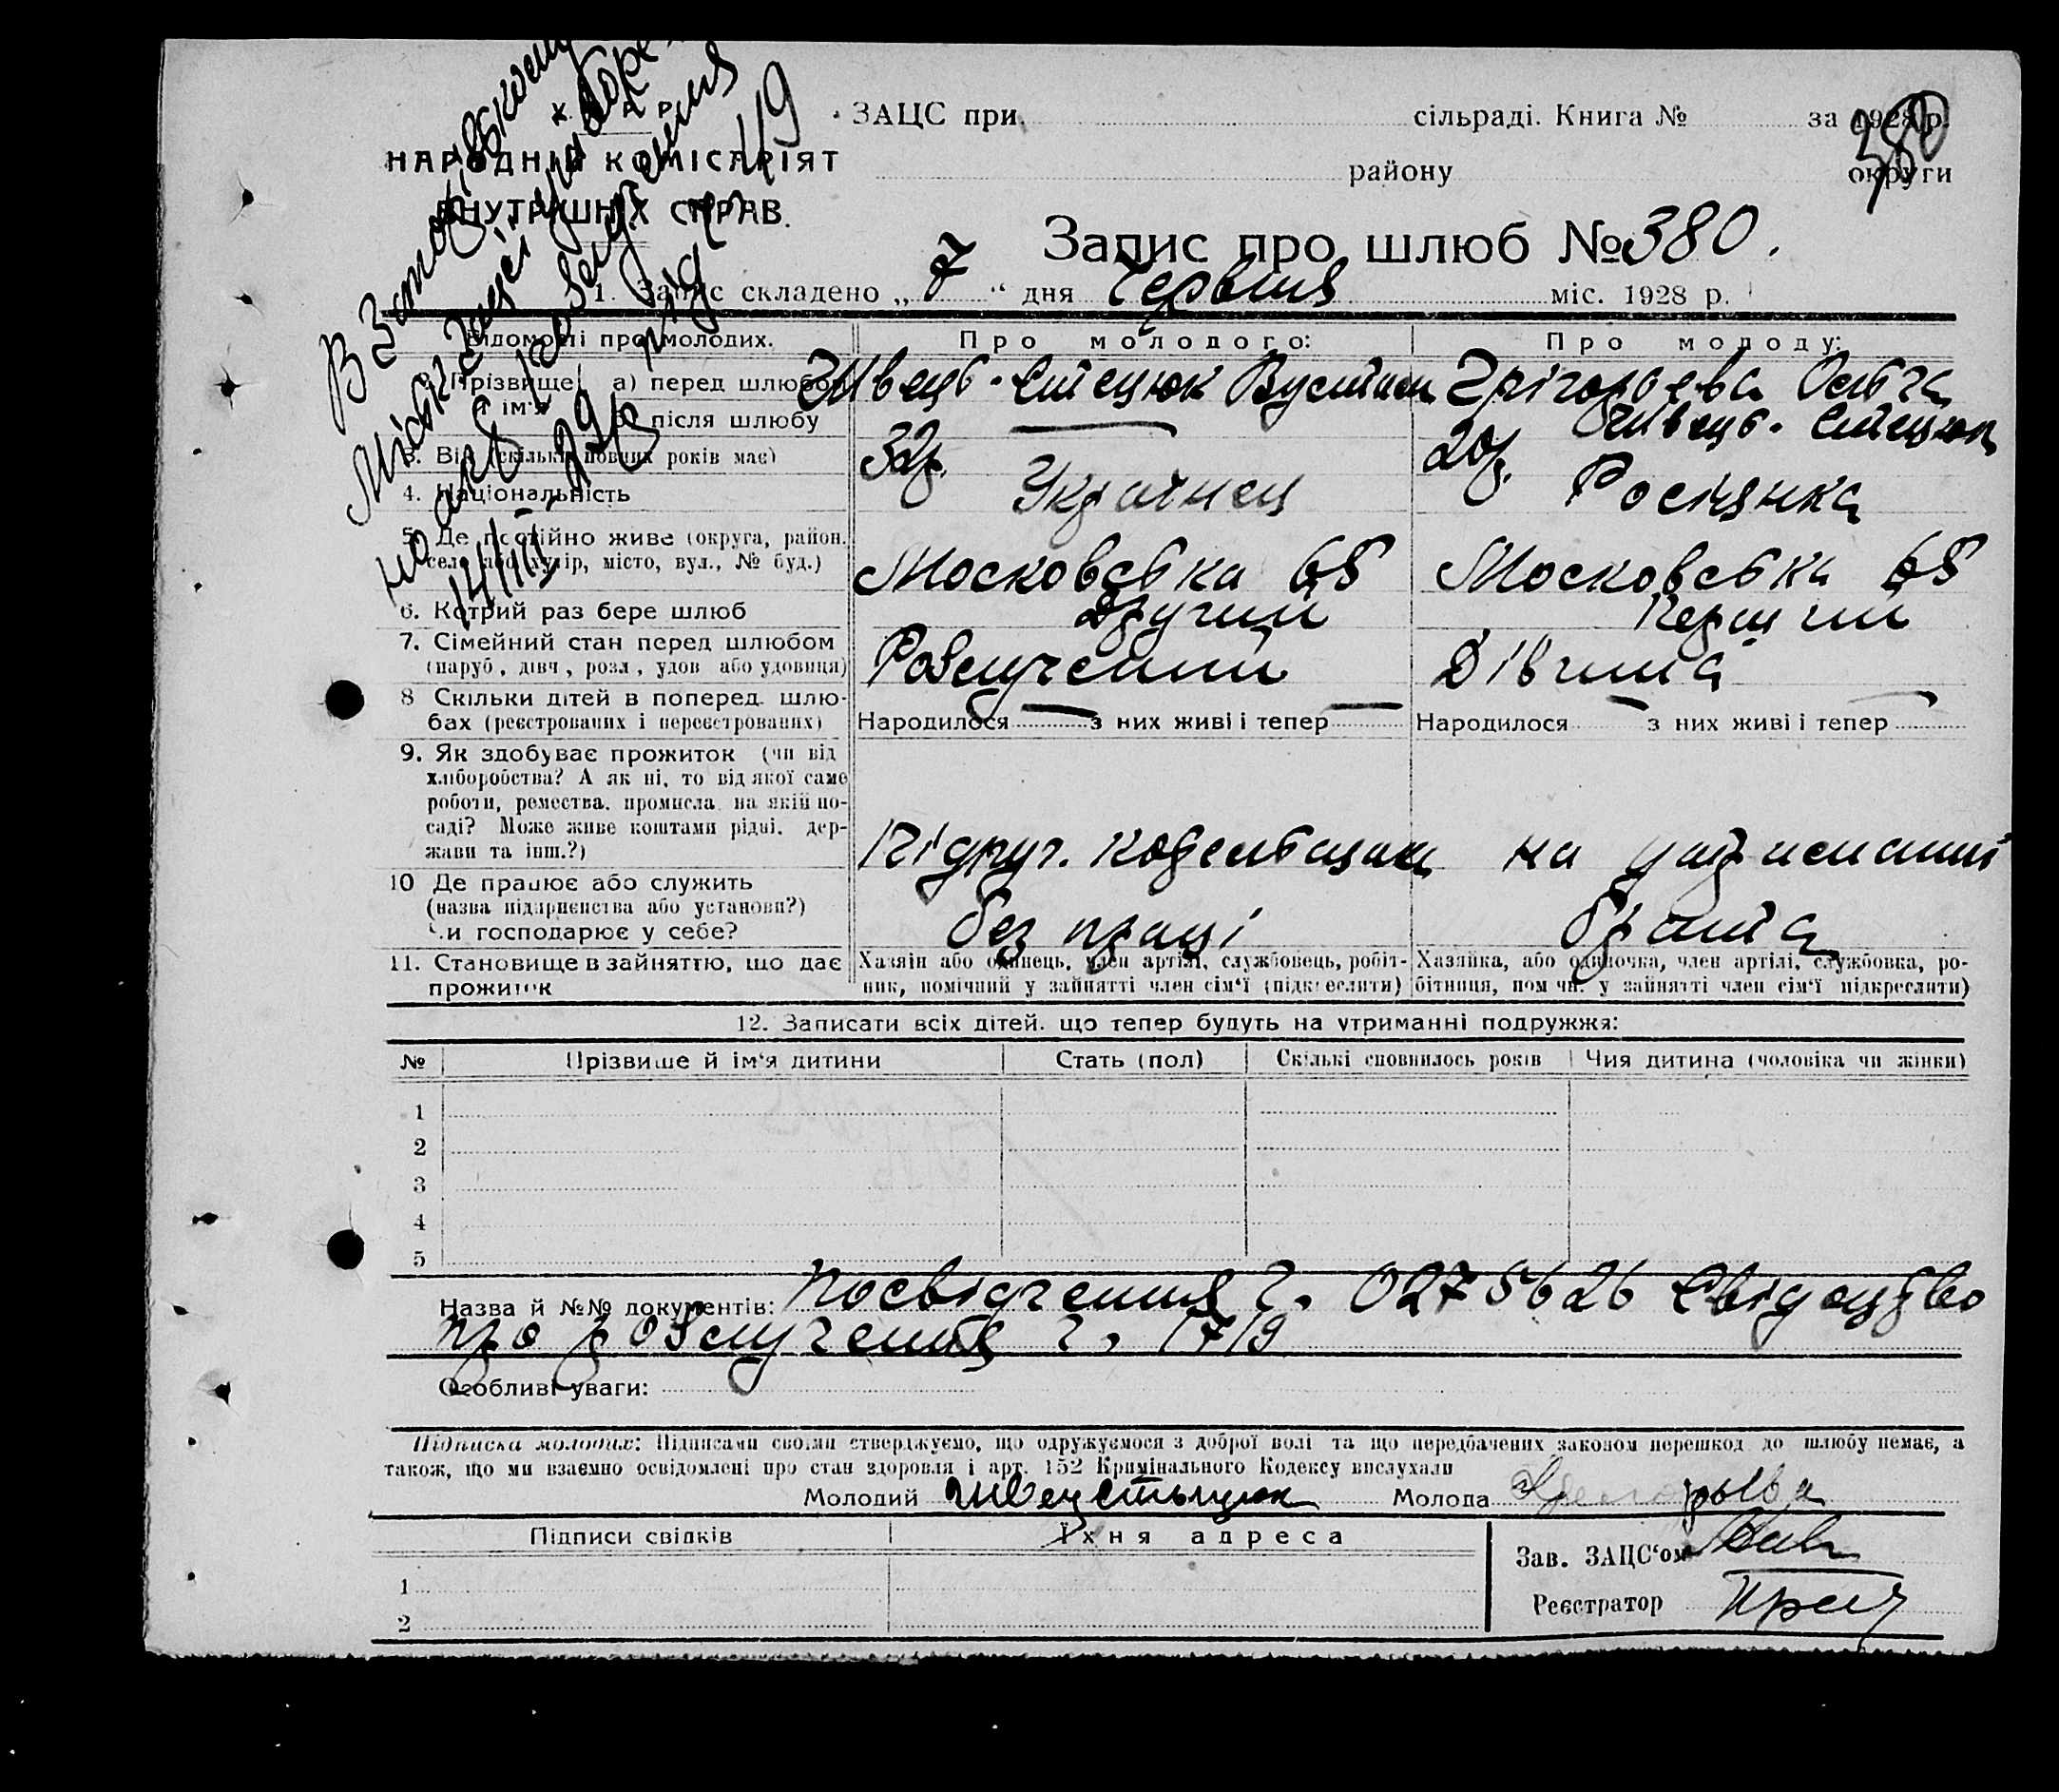 НАРОДНІЙ КОМІСАРІЯТ
ВНУТРІШНІХ СПРАВ.
ЗАЦС при сільраді. Книга № за 1928 р.
району округи
380
Запис про шлюб № 380.
1. Запис складено „ 7 “ дня Червня міс. 1928 р.
Відомості про молодих. Про молодого: Про молоду:
2. Прізвище і ім'я а) перед шлюбом Швець-Стецюк Вустим Грігорьева Ольга
б) після шлюбу — Швець-Стецюк
3. Вік (скільки повних років має) 32р. 20р.
4. Національність Українец Росіянка
5. Де постійно живе (округа, район,
село або хутір, місто, вул., № буд.) Московська 68 Московська 68
6. Котрий раз бере шлюб Другий Перший
7. Сімейний стан перед шлюбом
(паруб, дівч, розл, удов або удовиця) Розлучений Дівчина
8 Скільки дітей в поперед. шлю-
бах (реєстрованих і нереєстрованих) Народилося — з них живі і тепер — Народилося — з них живі і тепер —
9. Як здобуває прожиток (чи від
хліборобства? А як ні, то від якої саме
роботи, ремества, промисла, на якій по-
саді? Може живе коштами рідні, дер-
жави та інш.?) Підруч. на
10 Де працює або служить
(назва підприємства або установи?)
Чи господарює у себе? без праці брата
11. Становище в зайняттю, що дає
прожиток
Хазяїн або одинець, член артілі, службовець, робіт-
ник, помічний у зайнятті член сім'ї (підкреслити)
Хазяйка, або одиночка, член артілі, службовка, ро-
бітниця, помічн. у зайнятті член сім'ї підкреслити)
12. Записати всіх дітей, що тепер будуть на утриманні подружжя:
№ Прізвище й ім'я дитини Стать (пол) Скількі сповнилось років Чия дитина (чоловіка чи жінки)
1
2
3
4
5
Назва й №№ документів: Посвідчення ч. 0275626 Свідоцтво
про розлучення ч. 1719
Особливі уваги:
Підписка молодих: Підписами своїми стверджуємо, що одружуємося з доброї волі та що передбачених законом перешкод до шлюбу немає, а
також, що ми взаємно освідомлені про стан здоровля і арт. 152 Кримінального Кодексу вислухали
Молодий Молода
Підписи свідків Їхня адреса
1
2
Зав. ЗАЦС'ом
Реєстратор